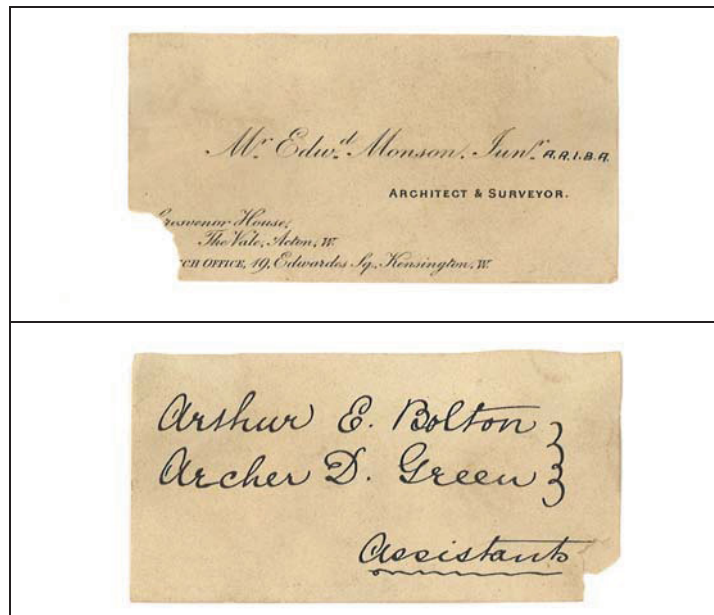 Mr. Edwd. Monson. Junr. A.R.I.B.A.
ARCHITECT & SURVEYOR.
rosvenor House,
The Vale, Acton, W.
CH OFFICE, 49, Edwardes Sq., Kensington, W.
Arthur E. Bolton
Archer D. Green
Assistants